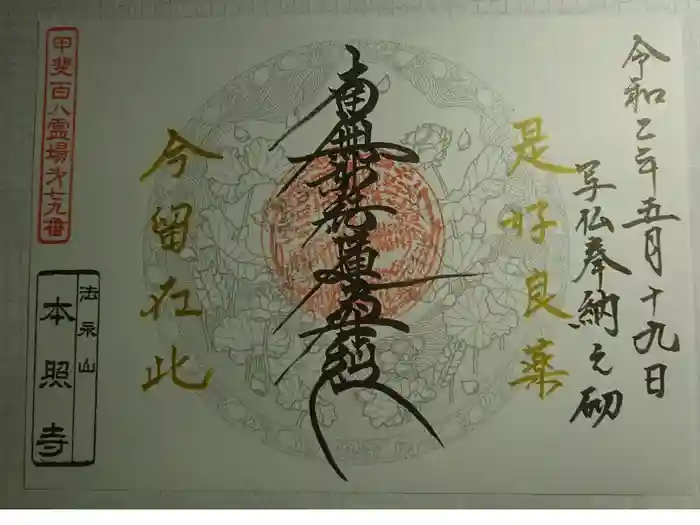 令和二年五月十九日
写仏奉納之砌
是好良薬
南無妙法蓮華経
今留在此
甲斐百八霊場第七九番
法永山
本照寺